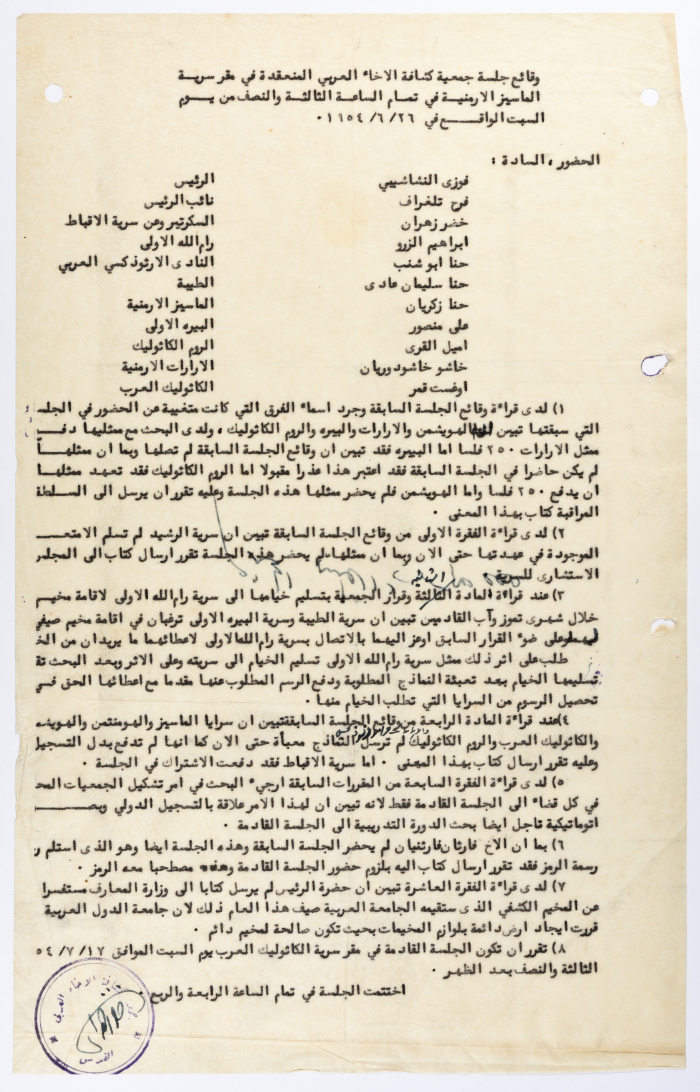 وقائع جلسة جمعية كشافة الاخاء العربي المنعقدة في مقر سرية
الماسيز الارمنية في تمام الساعة الثالثة والنصف من يوم
السبت الواقع في ٢٦/٦/١٩٥٤٠
الحضور، السادة :
فوزى النشاشيبي الرئيس
فرح تلغراف نائب الرئيس
خضر زهران السكرتير وعن سرية الاقباط
ابراهيم الزرو رام الله الاولى
حنا ابو شنب النادى الارثوذكسي العربي
حنا سليمان عادى الطيبة
حنا زكريان الماسيز الارمنية
على منصور البيره الاولى
اميل القرى الروم الكاثوليك
خاشو خاشودوريان الارارات الارمنية
اوغست قمر الكاثوليك العرب
١) لدى قراءة وقائع الجلسة السابقة وجرد اسماء الفرق التي كانت متغيبة عن الحضور في الجلسة
التي سبقتها تبين الهويشمن والارارات والبيره والروم الكاثوليك ، ولدى البحث مع ممثليها دفع
ممثل الارارات ٢٥٠ فلسا اما البيره فقد تبين ان وقائع الجلسة السابقة لم تصلها وبما ان ممثلها
لم يكن حاضرا في الجلسة السابقة فقد اعتبر هذا عذرا مقبولا اما الروم الكاثوليك فقد تعهد ممثلها
ان يدفع ٢٥٠ فلسا واما الهويشمن فلم يحضر ممثلها هذه الجلسة وعليه تقرر ان يرسل الى السلطة
المراقبة كتاب بهذا المعنى ٠
٢) لدى قراءة الفقرة الاولى من وقائع الجلسة السابقة تبين ان سرية الرشيد لم تسلم الامتعـ
الموجودة في عهدتها حتى الان وبما ان ممثلها لم يحضر هذه الجلسة تقرر ارسال كتاب الى المجلس
الاستشارى للسرية
٣) عند قراءة المادة الثالثة وقرار الجمعية بتسليم خيامها الى سرية رام الله الاولى لاقامة مخيم
خلال شهرى تموز وآب القادمين تبين ان سرية الطيبة وسرية البيره الاولى ترغبان في اقامة مخيم صيفي
وعلى ضوء القرار السابق اوعز اليهما بالاتصال بسرية رام الله الاولى لاعطائهما ما يريدان من الخ
طلب على اثر ذلك ممثل سرية رام الله الاولى تسليم الخيام الى سريته وعلى الاثر وبعد البحث تق
تسليمها الخيام بعد تعبئة النماذج المطلوبة ودفع الرسم المطلوب عنها مقدما مع اعطائها الحق في
تحصيل الرسوم من السرايا التي تطلب الخيام منها ٠
٤) عند قراءة المادة الرابعة من وقائع الجلسة السابقة تبين ان سرايا الماسيز والهومنتمن والهويشـ
والكاثوليك العرب والروم الكاثوليك لم ترسل النماذج معبأة حتى الان كما انها لم تدفع بدل التسجيل
وعليه تقرر ارسال كتاب بهذا المعنى ٠ اما سرية الاقباط فقد دفعت الاشتراك في الجلسة ٠
٥) لدى قراءة الفقرة السابعة من المقررات السابقة ارجيء البحث في امر تشكيل الجمعيات المح
في كل قضاء الى الجلسة القادمة فقط لانه تبين ان لهذا الامر علاقة بالتسجيل الدولي وبصـ
اتوماتيكية تاجل ايضا بحث الدورة التدريبية الى الجلسة القادمة ٠
٦) بما ان الاخ فارتان فارتنيان لم يحضر الجلسة السابقة وهذه الجلسة ايضا وهو الذى استلم ر
رسمة الرمز فقد تقرر ارسال كتاب اليه بلزوم حضور الجلسة القادمة مصطحبا معه الرمز ٠
٧) لدى قراءة الفقرة العاشرة تبين ان حضرة الرئيس لم يرسل كتابا الى وزارة المعارف مستفسرا
عن المخيم الكشفي الذى ستقيمه الجامعة العربية صيف هذا العام ذلك لان جامعة الدول العربية
قررت ايجاد ارض دائمة بلوازم المخيمات بحيث تكون صالحة لمخيم دائم ٠
٨) تقرر ان تكون الجلسة القادمة في مقر سرية الكاثوليك العرب يوم السبت الموافق ١٧/٧/٥٤
الثالثة والنصف بعد الظهر ٠
اختتمت الجلسة في تمام الساعة الرابعة والربع ٠
الاخاء العربي
القدس